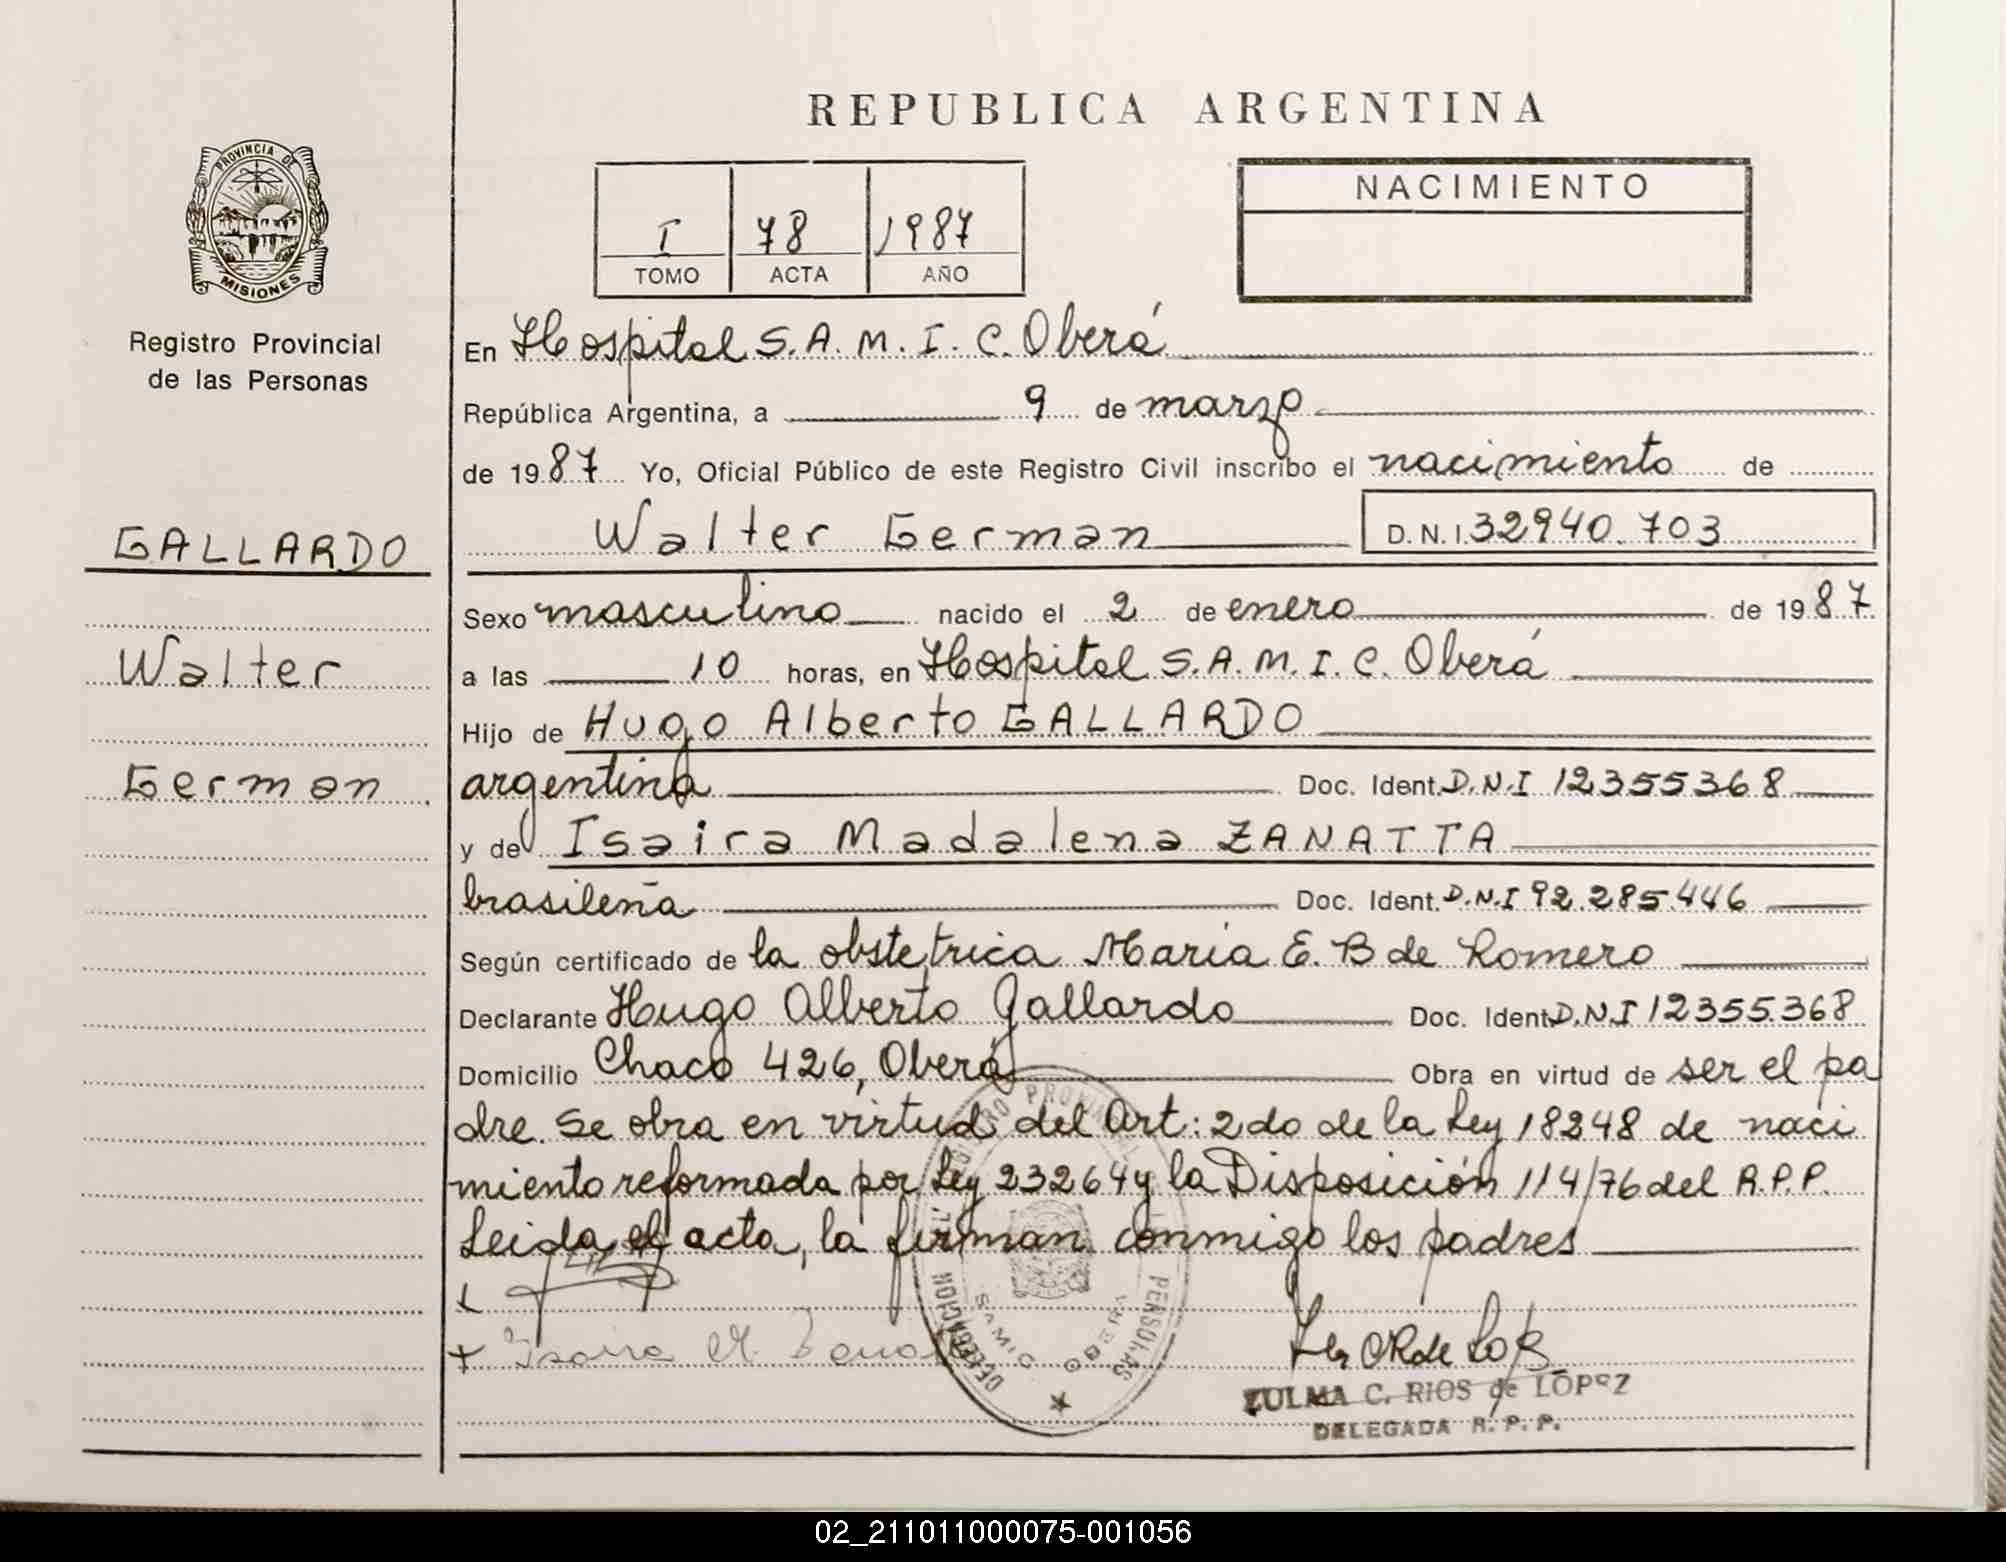 REPUBLICA ARGENTINA
PROVINCIA DE
MISIONES
Registro Provincial
de las Personas
I 78 1987
TOMO ACTA AÑO
NACIMIENTO
En Hospital S.A.M.I.C. Oberá
República Argentina, a 9 de marzo
de 1987 Yo, Oficial Público de este Registro Civil inscribo el nacimiento de
Walter German D.N.I. 32940.703
GALLARDO
Walter
German
Sexo masculino nacido el 2 de enero de 1987
a las 10 horas, en Hospital S.A.M.I.C. Oberá
Hijo de Hugo Alberto GALLARDO
argentina Doc. Ident. D.N.I 12355368
y de Isaira Madalena ZANATTA
brasileña Doc. Ident. D.N.I 92.285.446
Según certificado de la obstetrica Maria E. B de Romero
Declarante Hugo Alberto Gallardo Doc. Ident. D.N.I 12355.368
Domicilio Chaco 426, Oberá Obra en virtud de ser el pa
dre. Se obra en virtud del Art: 2do de la Ley 18248 de naci
miento reformada por Ley 23264 y la Disposición 114/76 del R.P.P.
Leida el acta, la firman conmigo los padres
Isaira M.
ZULMA C. RIOS de LÓPEZ
DELEGADA R. P. P.
DELEGACION SAMIC OBERA
02_211011000075-001056